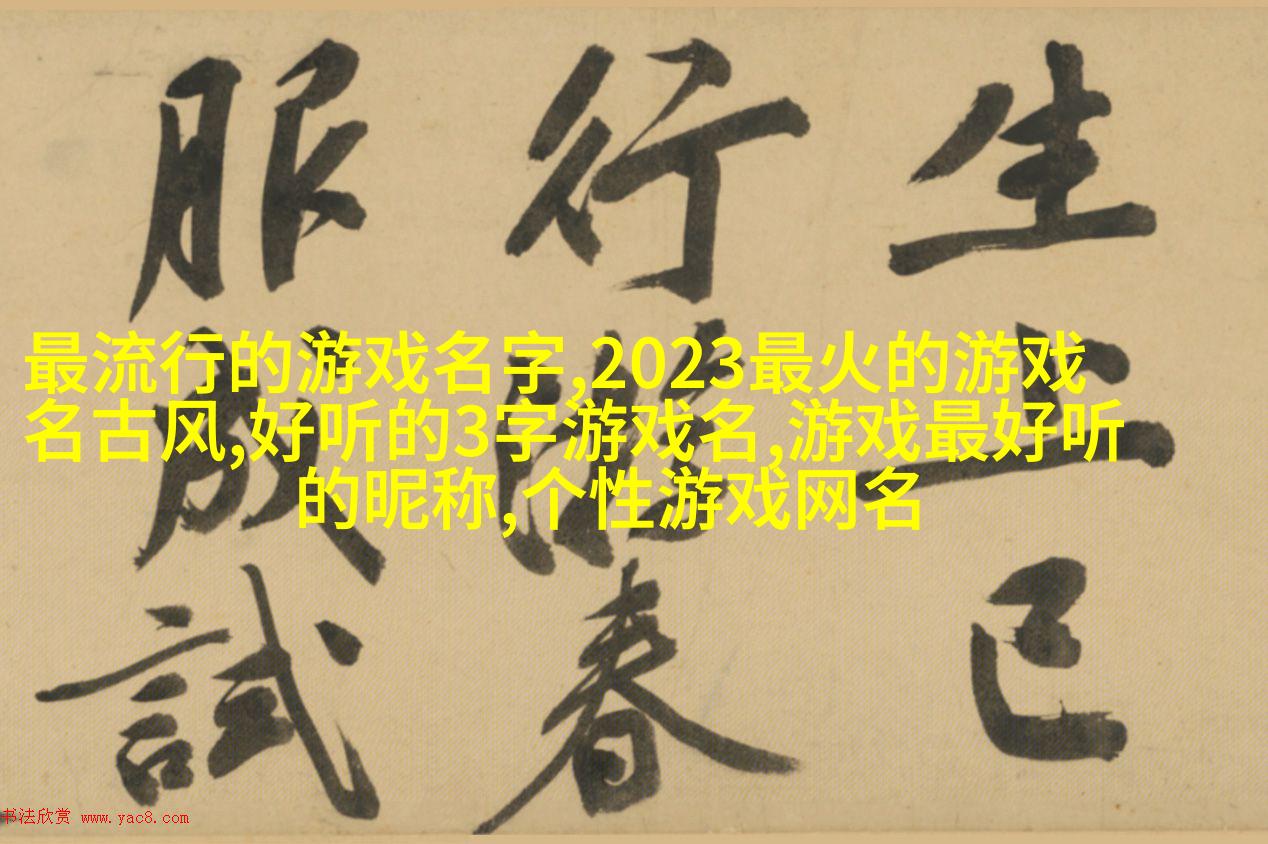 生上巳
行臨春
服成試
最流行的游戏名字,2023最火的游戏
名古风,好听的3字游戏名,游戏最好听
的昵称,个性游戏网名
书法欣赏 www.yac8.com